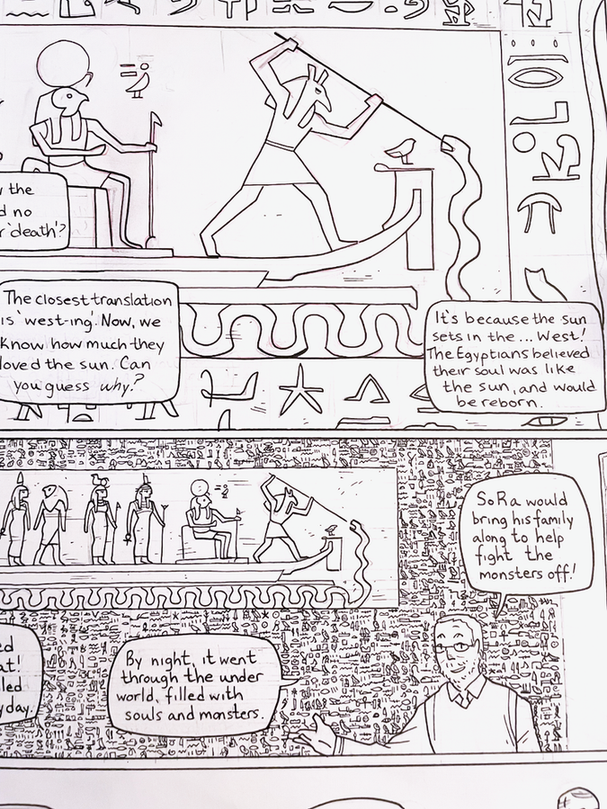 the
no
'death'?
The closest translation
is 'west-ing'. Now, we
know how much they
loved the sun. Can
you guess why?
It's because the sun
sets in the ... West!
The Egyptians believed
their soul was like
the sun, and would
be reborn.
So Ra would
bring his family
along to help
fight the
monsters off!
By night, it went
through the under
world, filled with
souls and monsters.